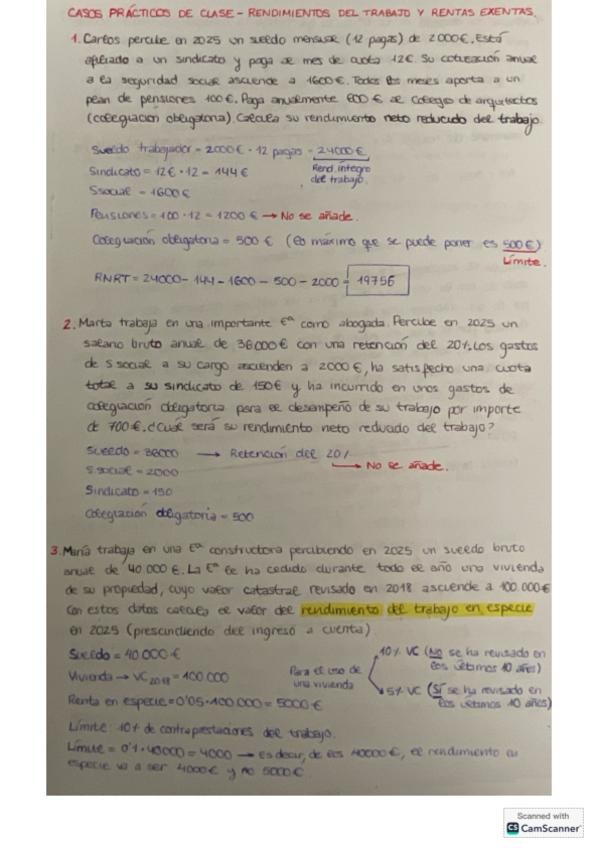 CASOS PRÁCTICOS DE CLASE - RENDIMIENTOS DEL TRABAJO Y RENTAS EXENTAS.
1. Carlos percibe en 2025 un sueldo mensual (12 pagas) de 2000€. Está
afiliado a un sindicato y paga al mes de cuota 12€. Su cotización anual
a la seguridad social asciende a 1600€. Todos los meses aporta a un
plan de pensiones 100€. Paga anualmente 600€ al colegio de arquitectos
(colegiación obligatoria). Calcula su rendimiento neto reducido del trabajo.
Sueldo trabajador = 2000€ · 12 pagas = 24000€
Sindicato = 12€ · 12 = 144€
Rend. íntegro
del trabajo.
S social = 1600€
Pensiones = 100 · 12 = 1200€ → No se añade.
Colegiación obligatoria = 500€ (lo máximo que se puede poner es 500€)
Límite.
RNRT = 24000 - 144 - 1600 - 500 - 2000 = 19756
2. Marta trabaja en una importante Eª como abogada. Percibe en 2025 un
salario bruto anual de 36000€ con una retención del 20%. Los gastos
de S social a su cargo ascienden a 2000€, ha satisfecho una cuota
total a su sindicato de 150€ y ha incurrido en unos gastos de
colegiación obligatoria para el desempeño de su trabajo por importe
de 700€. ¿Cuál será su rendimiento neto reducido del trabajo?
Sueldo = 36000 → Retención del 20%
→ No se añade.
S social = 2000
Sindicato = 150
Colegiación obligatoria = 500
3. María trabaja en una Eª constructora percibiendo en 2025 un sueldo bruto
anual de 40.000€. La Eª le ha cedido durante todo el año una vivienda
de su propiedad, cuyo valor catastral revisado en 2018 asciende a 100.000€
Con estos datos calcula el valor del rendimiento del trabajo en especie
en 2025 (prescindiendo del ingreso a cuenta).
Sueldo = 40.000€
Vivienda → VC2018 = 100.000
Renta en especie = 0'05 · 100.000 = 5000€
Para el uso de
una vivienda
10% VC (NO se ha revisado en
los últimos 10 años)
5% VC (SÍ se ha revisado en
los últimos 10 años)
Límite: 10% de contraprestaciones del trabajo.
Límite = 0'1 · 40000 = 4000 → Es decir, de los 40000€, el rendimiento en
especie va a ser 4000€ y no 5000€.
Scanned with
CS CamScanner